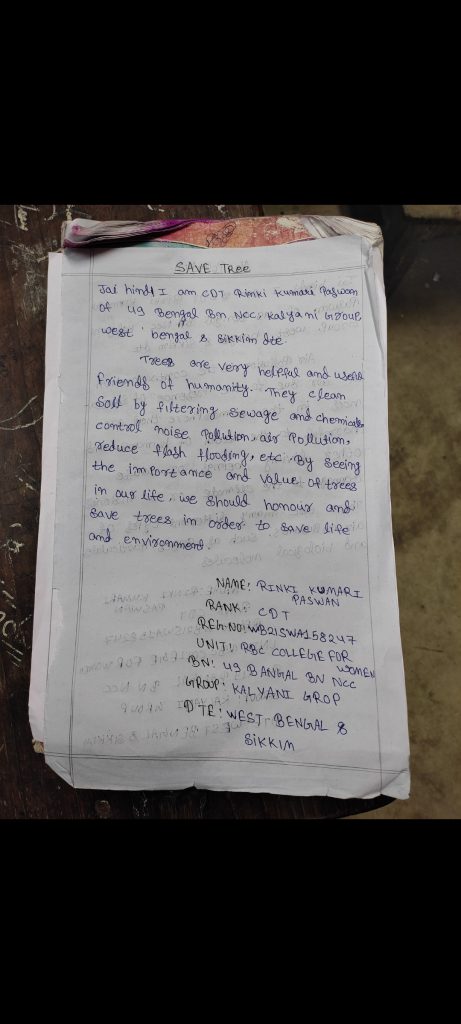 SAVE Tree
Jai hind! I am CDT Rinki Kumari Paswan
of 49 Bengal Bn NCC, Kalyani GROUP
west bengal & Sikkim dte
Trees are very helpful and useful
friends of humanity. They clean
Soil by filtering sewage and chemicals,
control noise Pollution, air Pollution,
reduce flash flooding, etc. By seeing
the importance and value of trees
in our life, we should honour and
save trees in order to save life
and environment.
NAME: RINKI KUMARI
PASWAN
RANK: CDT
REG.NO: WB21SWA158247
UNIT: RBC COLLEGE FOR
WOMEN
BN: 49 BANGAL BN NCC
GROUP: KALYANI GROP
D TE: WEST BENGAL &
SIKKIM